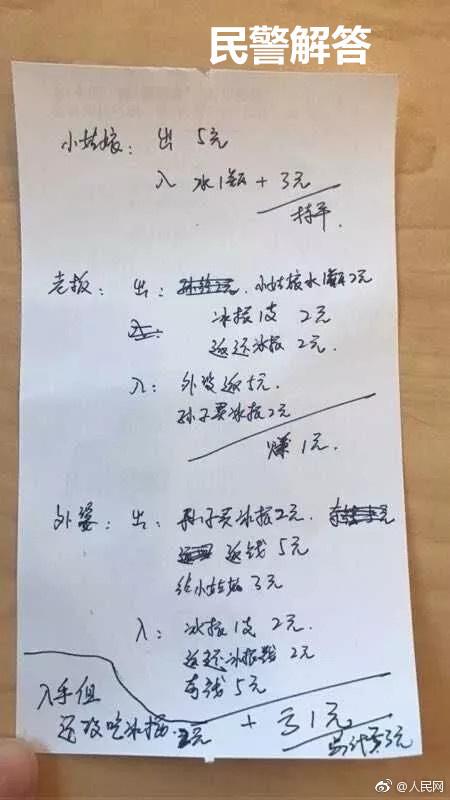 民警解答
小姑娘：出 5元
入 水1瓶 + 3元
持平.
老板：出：小姑娘水1瓶2元
冰棍1支 2元
返还冰棍 2元.
入：外婆返5元.
孙子买冰棍2元
赚1元.
外婆：出：孙子买冰棍2元.
返钱 5元
给小姑娘 3元
入：冰棍1支 2元.
返还冰棍钱 2元
有钱 5元
入手但
还没吃冰棍.2元
+ 亏1元
共计亏3元
@人民网